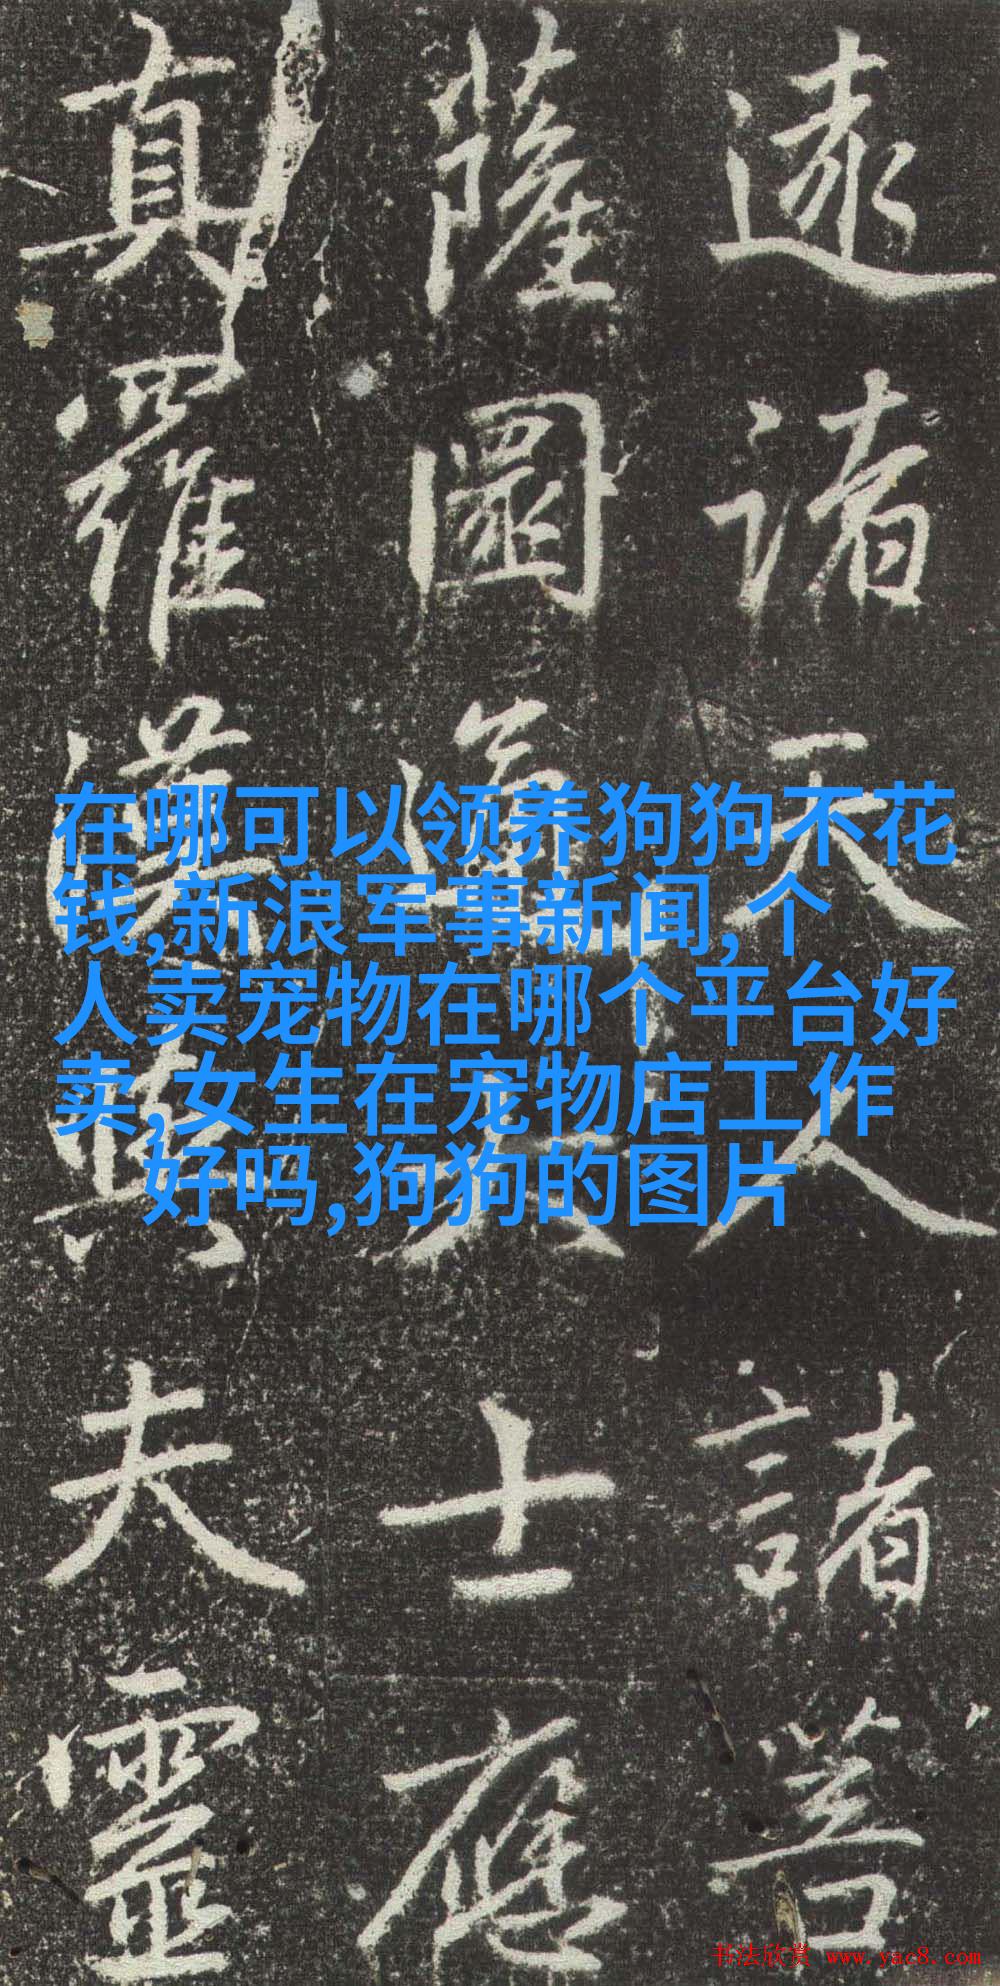 遠諸天人諸菩
薩圖
士應
真羅漢與夫靈
在哪可以领养狗狗不花
钱,新浪军事新闻,个
人卖宠物在哪个平台好
卖,女生在宠物店工作
好吗,狗狗的图片
书法欣赏 www.yac8.com